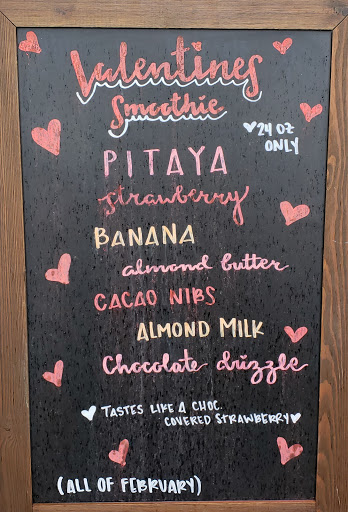 Valentines
Smoothie
♥24 OZ
ONLY
PITAYA
strawberry
BANANA
almond butter
CACAO NIBS
ALMOND MILK
Chocolate drizzle
♥ TASTES LIKE A CHOC.
COVERED STRAWBERRY♥
(ALL OF FEBRUARY)